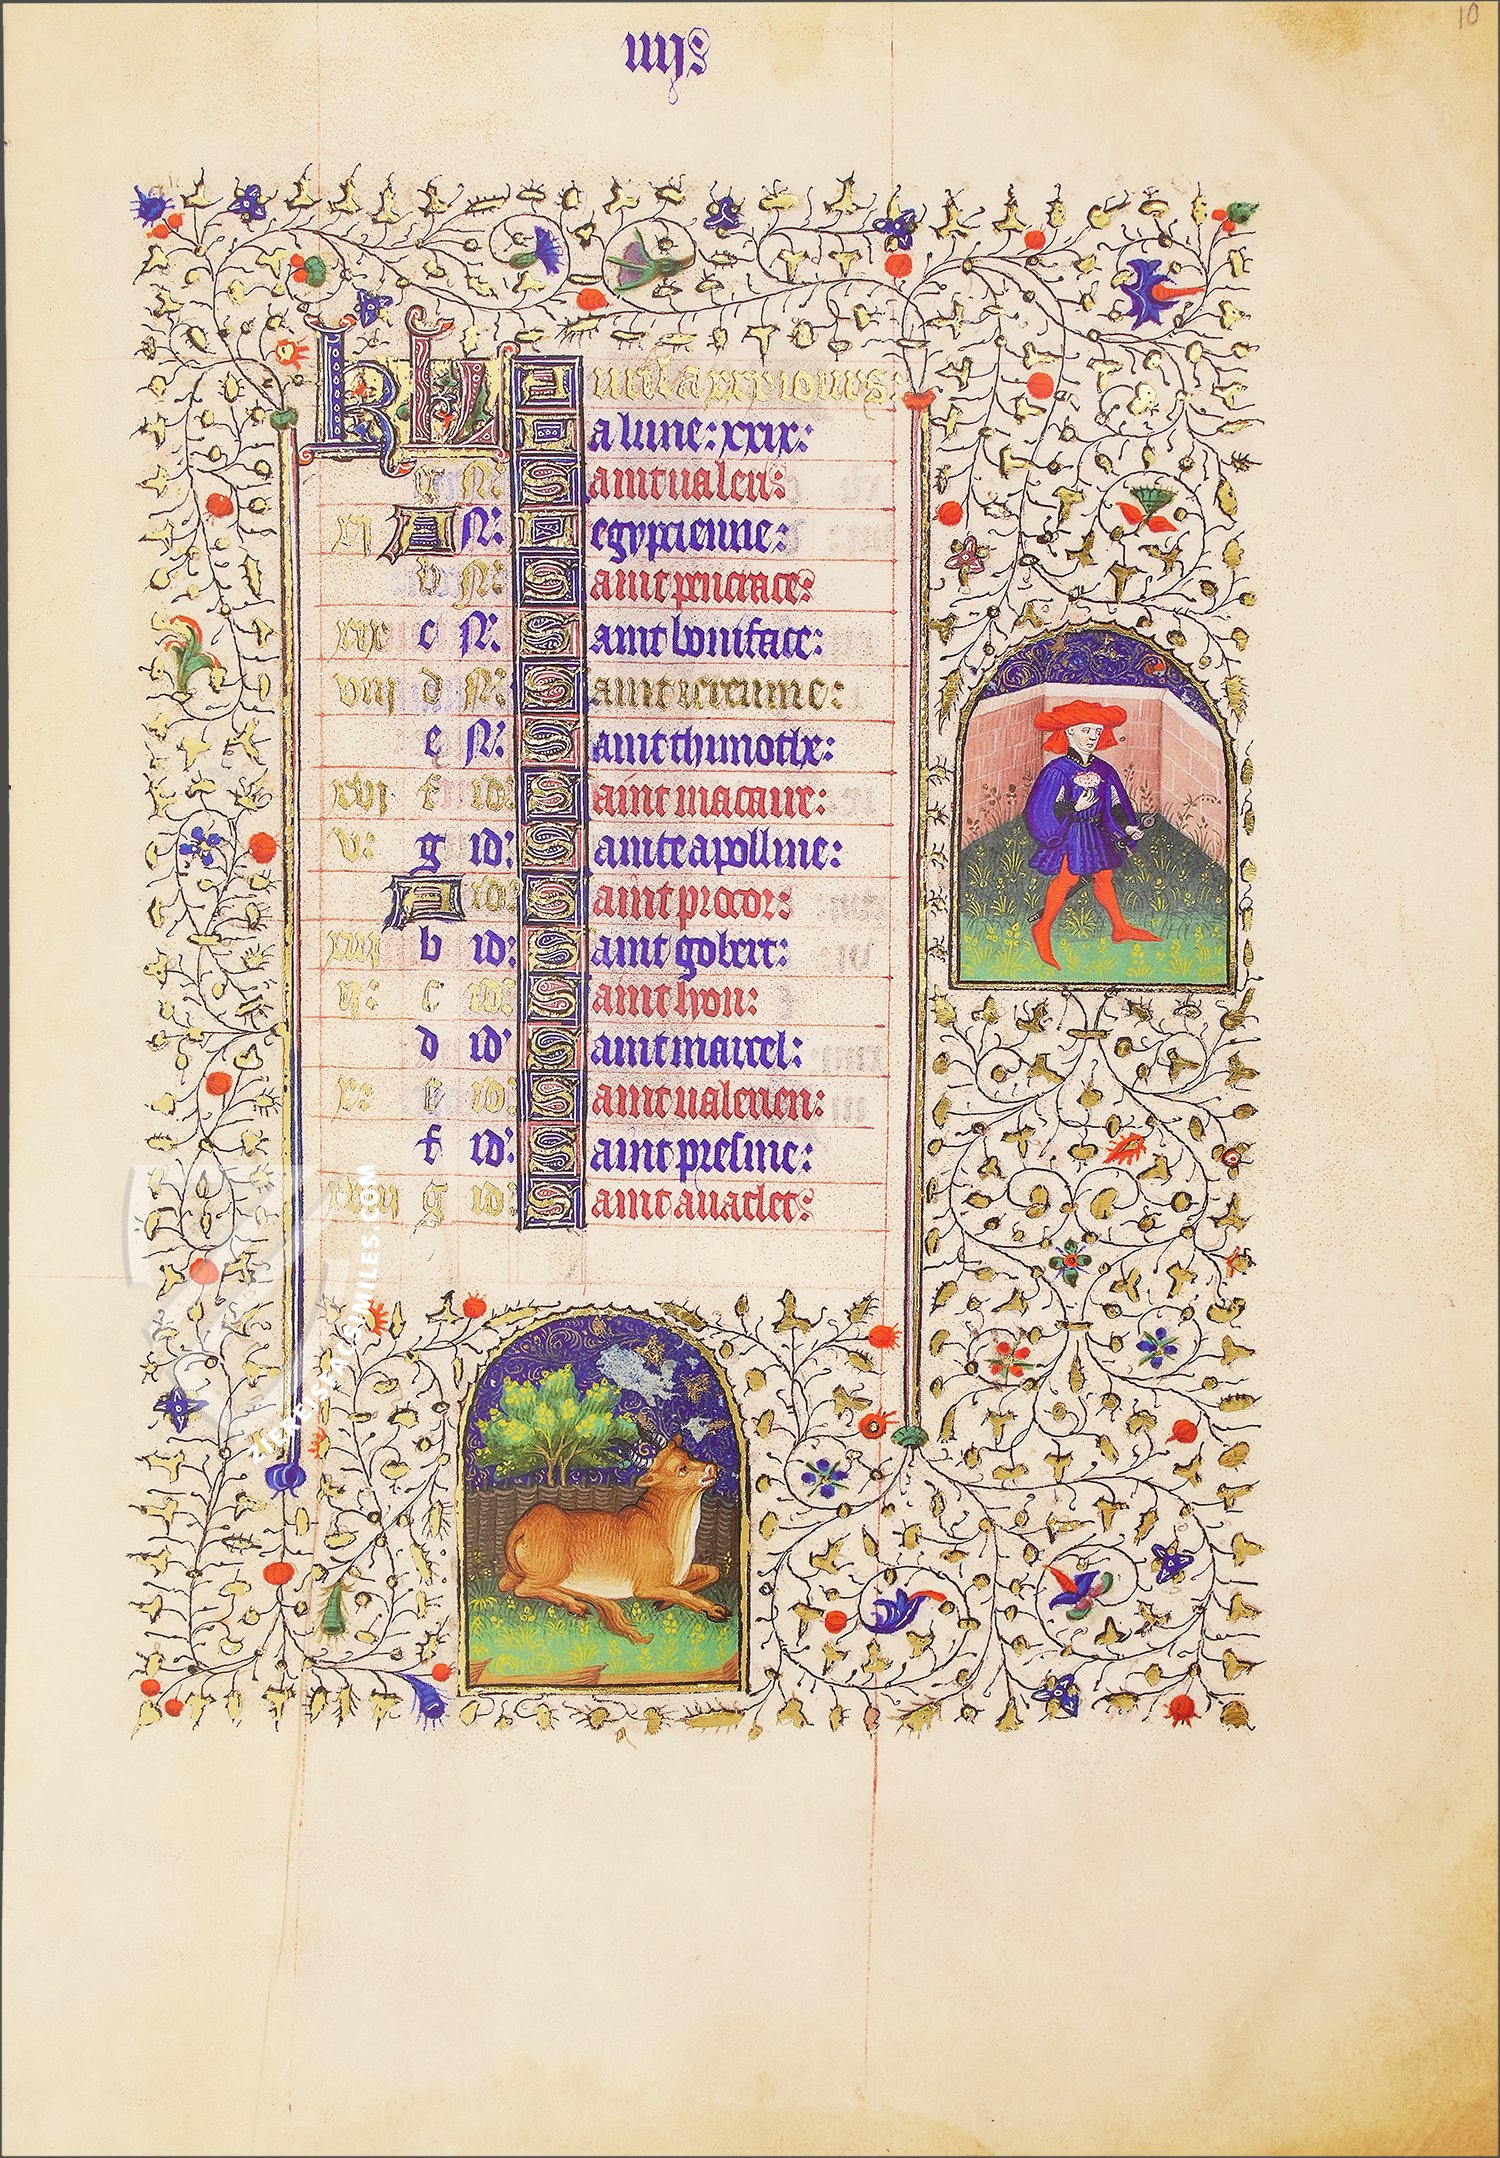 10
iiijs
KL Auril a xxx iours
La lune: xxix:
g N: Saint ualeris
xi A N: Degypcienne:
b N: Saint pancraces
xix c N: Saint boniface:
viij d N: Saint
e N: Saint thimothe:
xvj f id: Saint macaire:
v: g id: Sainte apolline:
A id: Saint procors
xiij b id: Saint gobert:
ij: c id: Saint lyon:
d id' Saint marcel:
x: e id: Saint ualerien:
f id: Saint presme:
xviij g id: Saint auaclets
ZIEREISFACSIMILES.COM